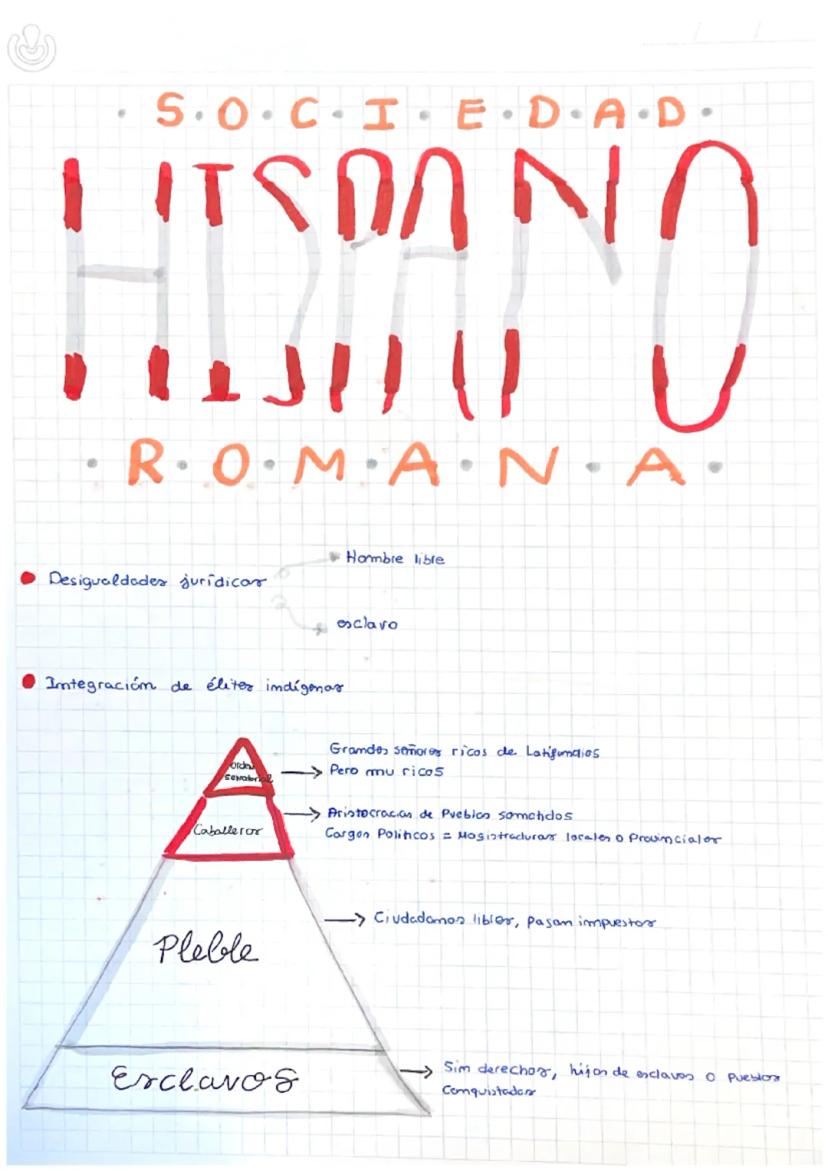 · S · O · C · I · E · D · A · D ·
HISPANO
· R · O · M · A · N · A ·
Hombre libre
Desigualdades jurídicas
esclavo
Integración de élites indígenas
Grandes señores ricos de Latifundios
orden
senatorial
Pero mu ricos
Aristocracias de Pueblos sometidos
Caballeros
Cargos Políticos = Magistraturas locales o Provinciales
Ciudadanos libres, pagan impuestos
Pleble
Sin derechos, hijos de esclavos o Pueblos
Esclavos
Conquistados